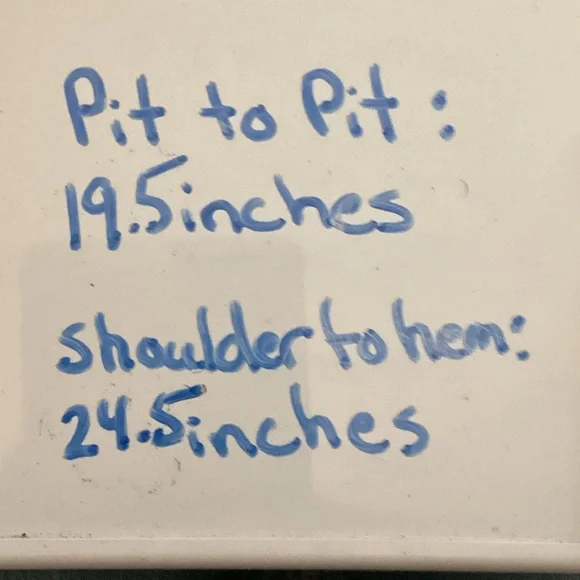 Pit to Pit:
19.5inches
shoulder to hem:
24.5inches